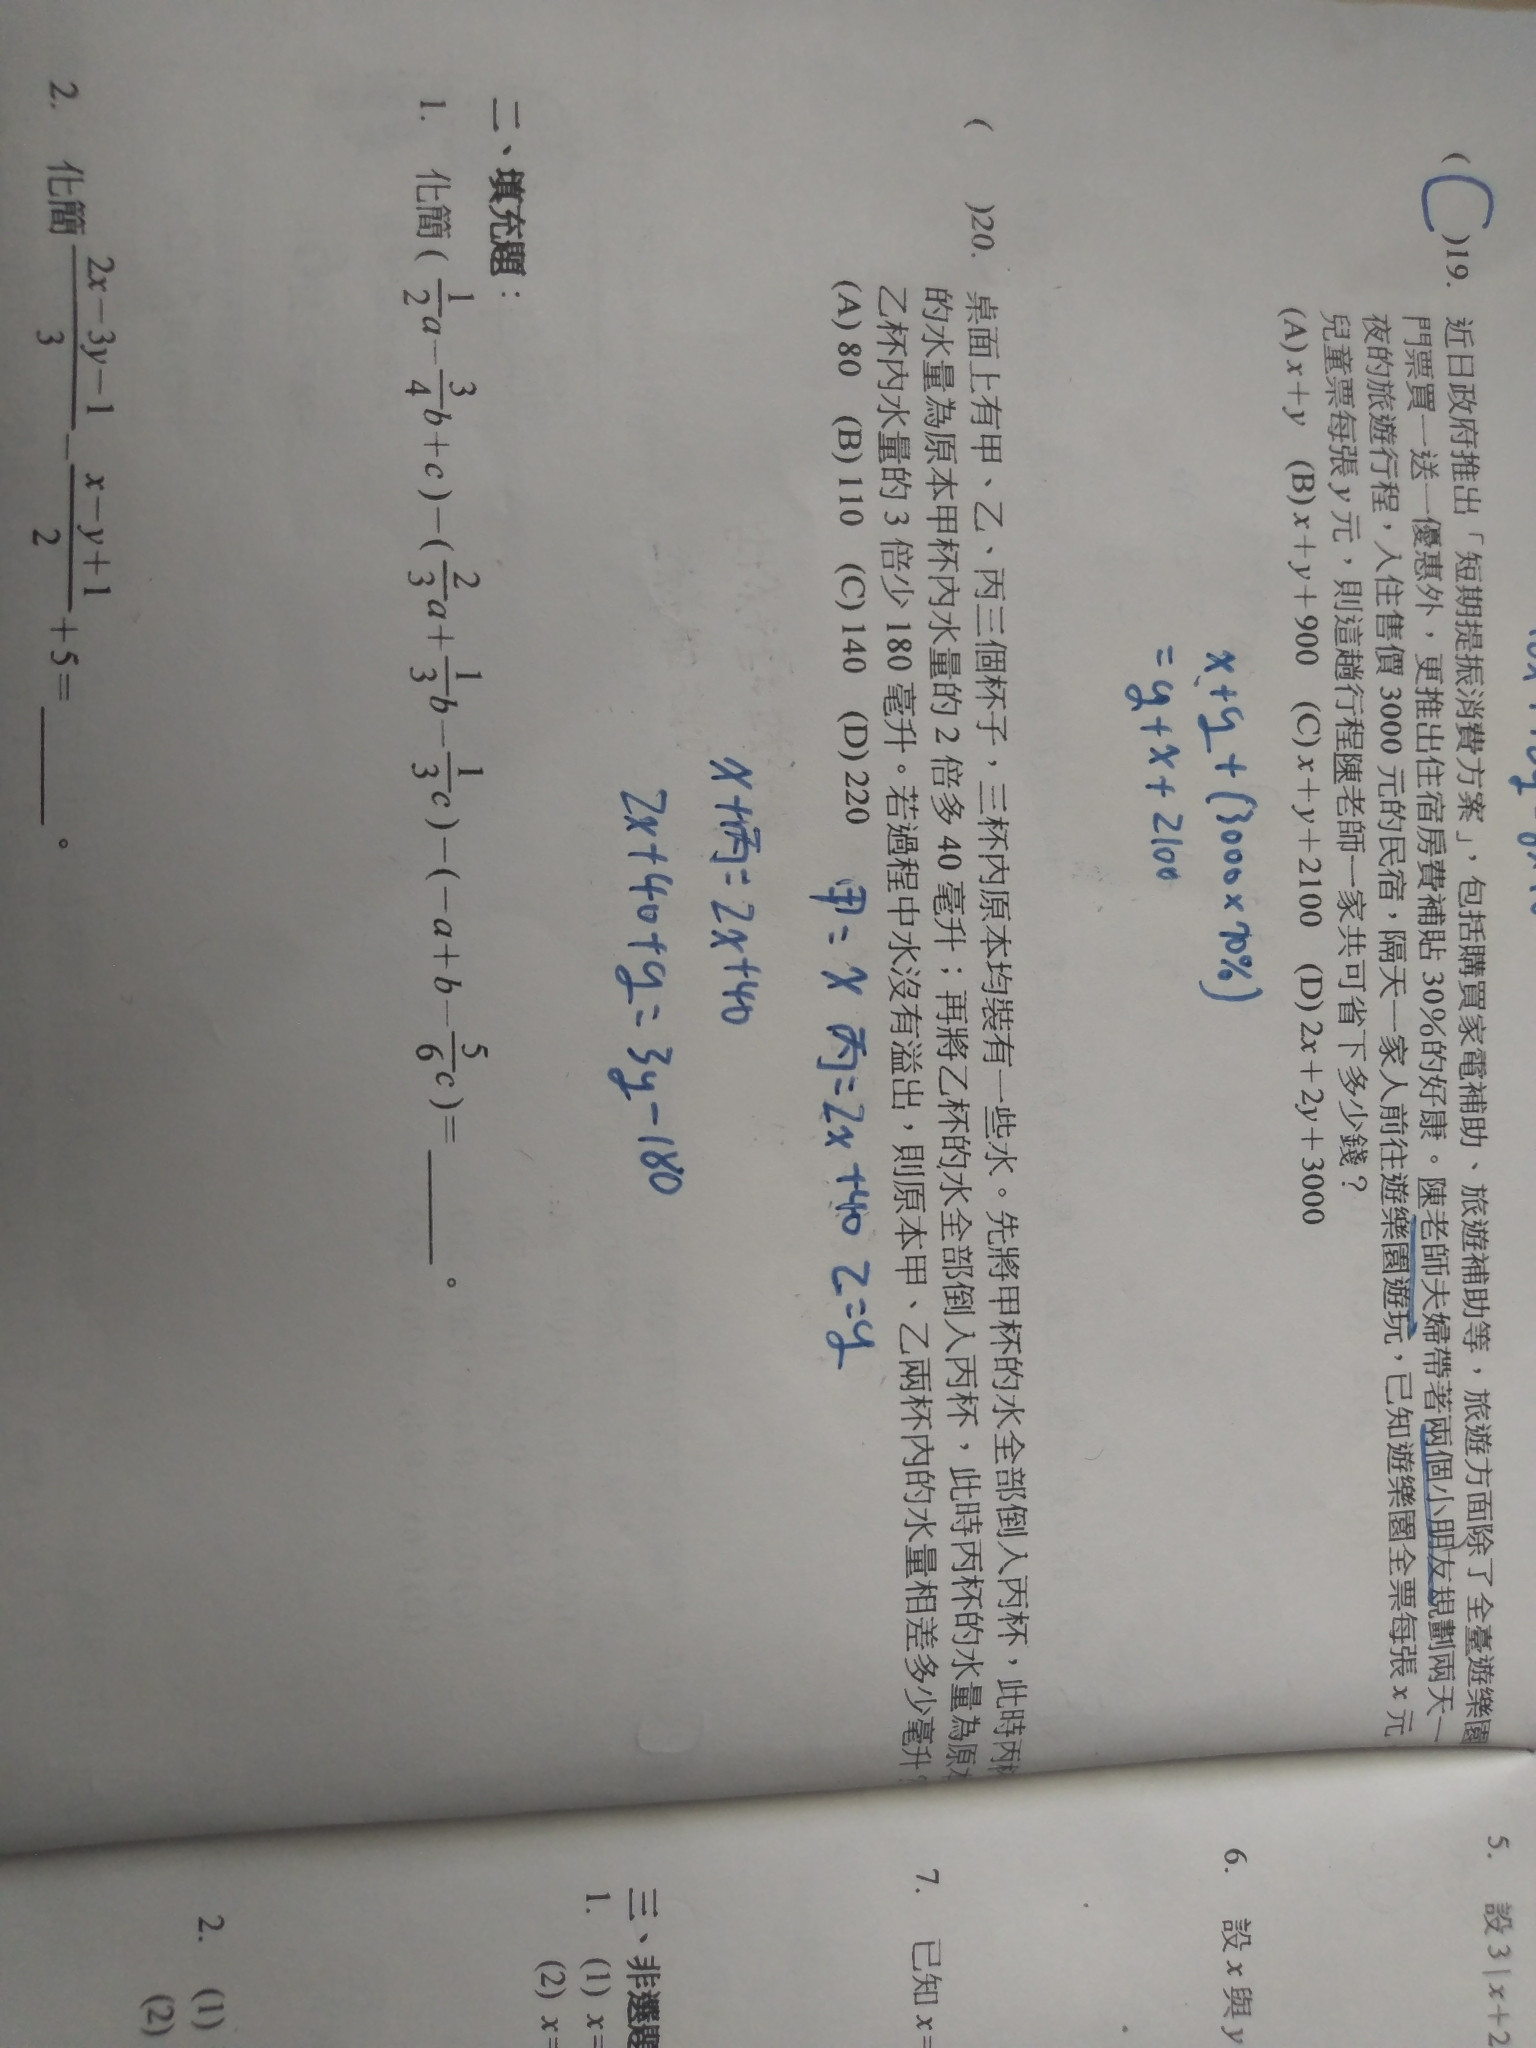 (C)19. 近日政府推出「短期提振消費方案」，包括購買家電補助、旅遊補助等，旅遊方面除了全臺遊樂園
門票買一送一優惠外，更推出住宿房費補貼 30%的好康。陳老師夫婦帶著兩個小朋友規劃兩天一
夜的旅遊行程，入住售價 3000 元的民宿，隔天一家人前往遊樂園遊玩，已知遊樂園全票每張 x 元
兒童票每張 y 元，則這趟行程陳老師一家共可省下多少錢？
(A) x＋y (B) x＋y＋900 (C) x＋y＋2100 (D) 2x＋2y＋3000
x+y+(3000×70%)
=y+x+2100
( )20. 桌面上有甲、乙、丙三個杯子，三杯內原本均裝有一些水。先將甲杯的水全部倒入丙杯，此時丙杯
的水量為原本甲杯內水量的 2 倍多 40 毫升；再將乙杯的水全部倒入丙杯，此時丙杯的水量為原
乙杯內水量的 3 倍少 180 毫升。若過程中水沒有溢出，則原本甲、乙兩杯內的水量相差多少毫升
(A) 80 (B) 110 (C) 140 (D) 220
甲=x 丙=2x+40 乙=y
x+丙=2x+40
2x+40+y=3y-180
二、填充題：
1. 化簡 (1/2a－3/4b＋c)－(2/3a＋1/3b－1/3c)－(－a＋b－5/6c)＝______。
2. 化簡 2x－3y－1/3－x－y＋1/2＋5＝______。
5. 設 3 | x＋2
6. 設 x 與 y
7. 已知 x＝
三、非選題
1. (1) x＝
(2) x＝
2. (1)
(2)